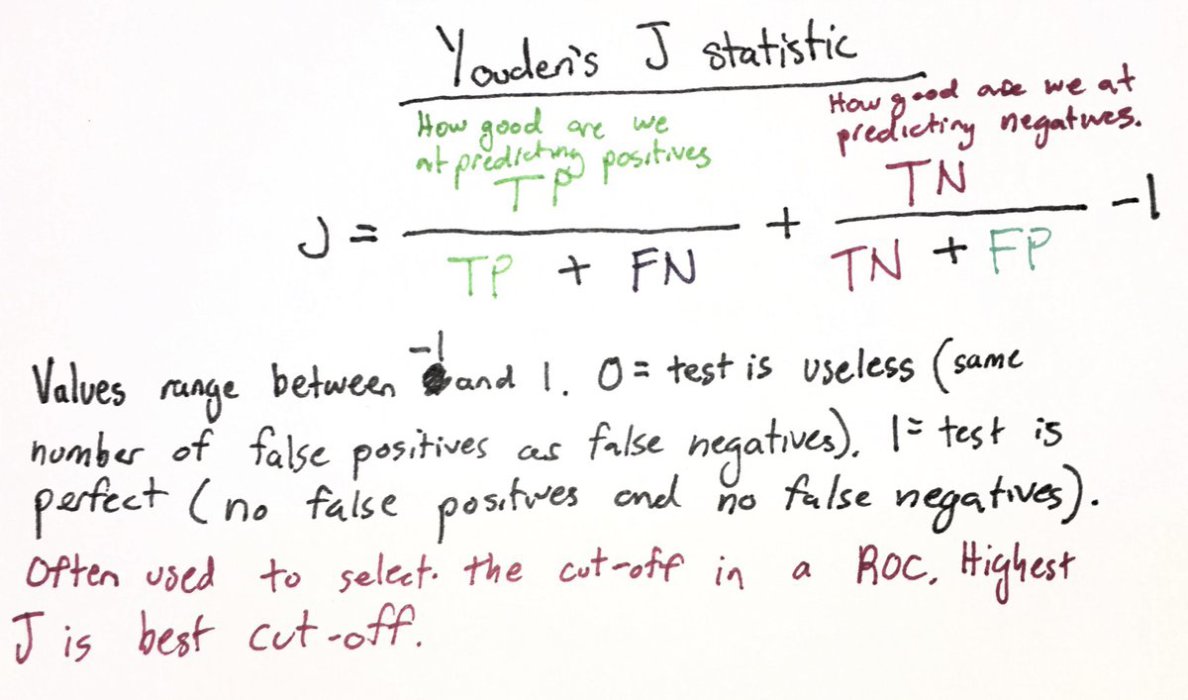 Youden's J statistic
How good are we
at predicting positives
How good are we at
predicting negatives.
J = TP / TP + FN + TN / TN + FP -1
Values range between -1 and 1. 0 = test is useless (same
number of false positives as false negatives). 1 = test is
perfect (no false positives and no false negatives).
Often used to select. the cut-off in a ROC. Highest
J is best cut-off.